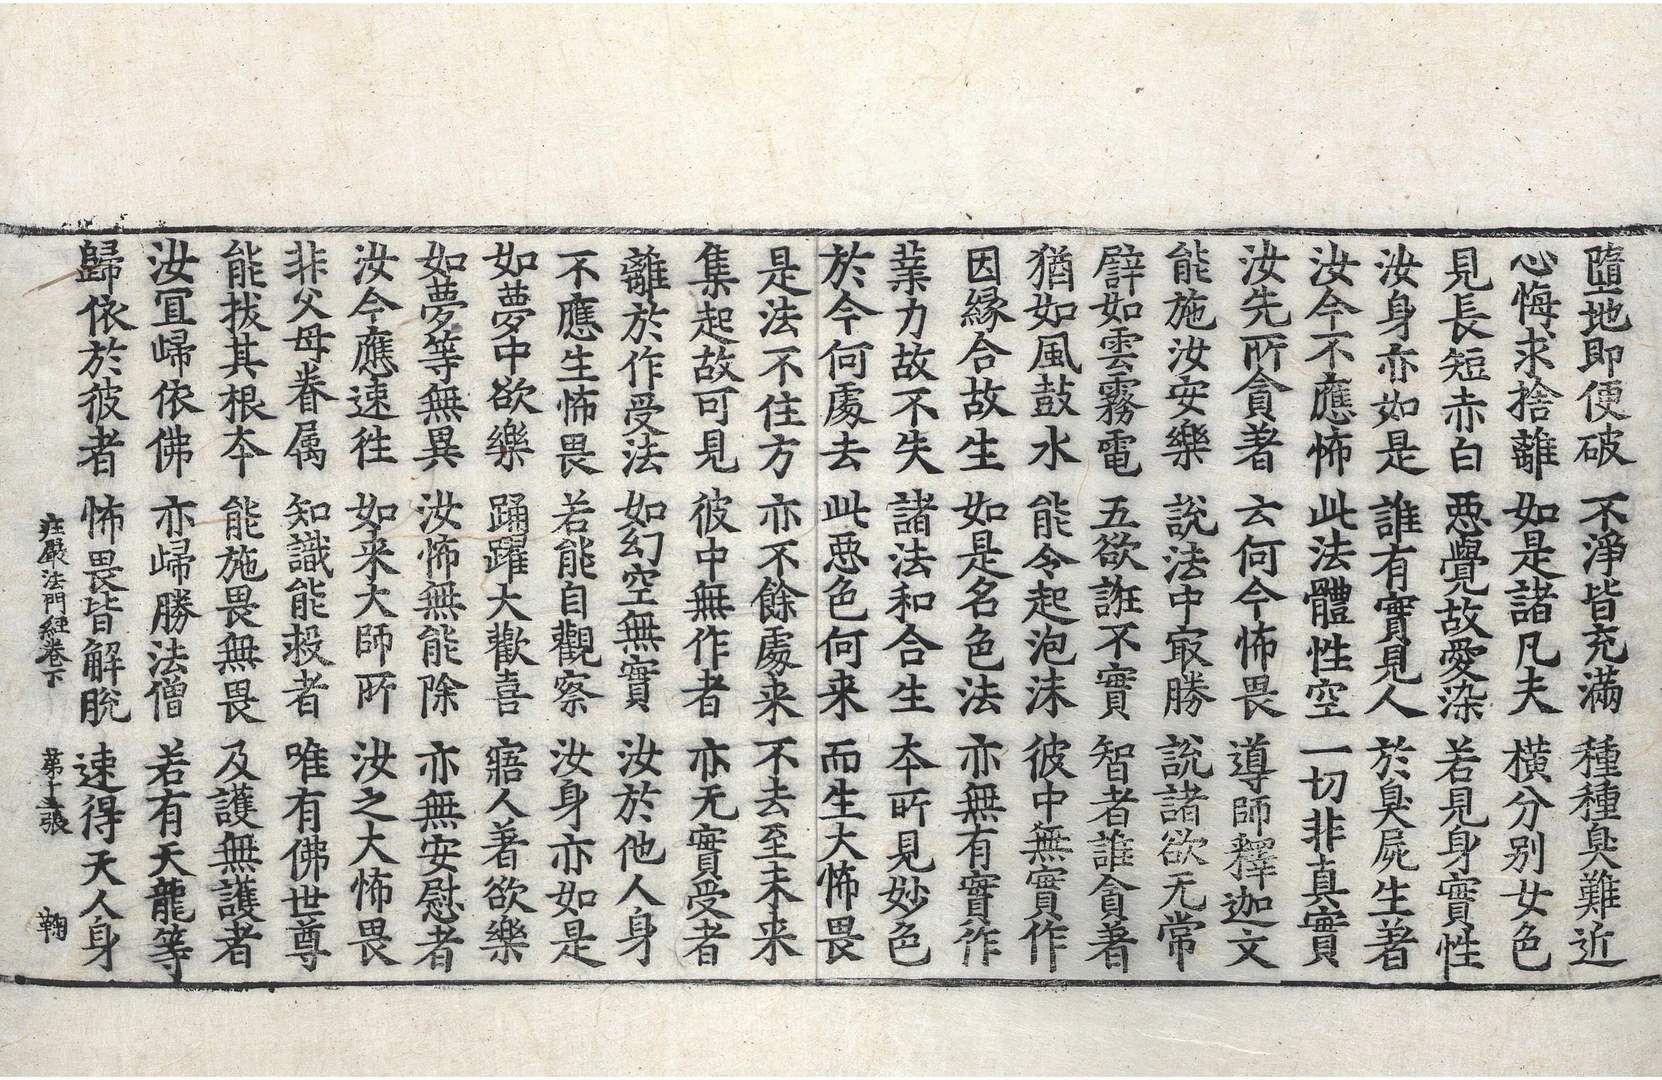 墮地即便破 不淨皆充滿 種種臭難近
心悔求捨離 如是諸凡夫 橫分別女色
見長短赤白 惡覺故愛染 若見身實性
汝身亦如是 誰有實見人 於臭屍生著
汝今不應怖 此法體性空 一切非真實
汝先所貪著 云何今怖畏 導師釋迦文
能施汝安樂 說法中㝡勝 說諸欲无常
譬如雲霧電 五欲誑不實 智者誰貪著
猶如風鼓水 能令起泡沫 彼中無實作
因緣合故生 如是名色法 亦無有實作
業力故不失 諸法和合生 本所見妙色
於今何處去 此惡色何来 而生大怖畏
是法不住方 亦不餘處来 不去至未来
集起故可見 彼中無作者 亦无實受者
離於作受法 如幻空無實 汝於他人身
不應生怖畏 若能自觀察 汝身亦如是
如夢中欲樂 踊躍大歡喜 寤人著欲樂
如夢等無異 汝怖無能除 亦無安慰者
汝今應速往 如来大師所 汝之大怖畏
非父母眷属 知識能救者 唯有佛世尊
能拔其根本 能施畏無畏 及護無護者
汝冝歸依佛 亦歸勝法僧 若有天龍等
歸依於彼者 怖畏皆解脫 速得天人身
庄嚴法門經卷下 第十三張 鞠